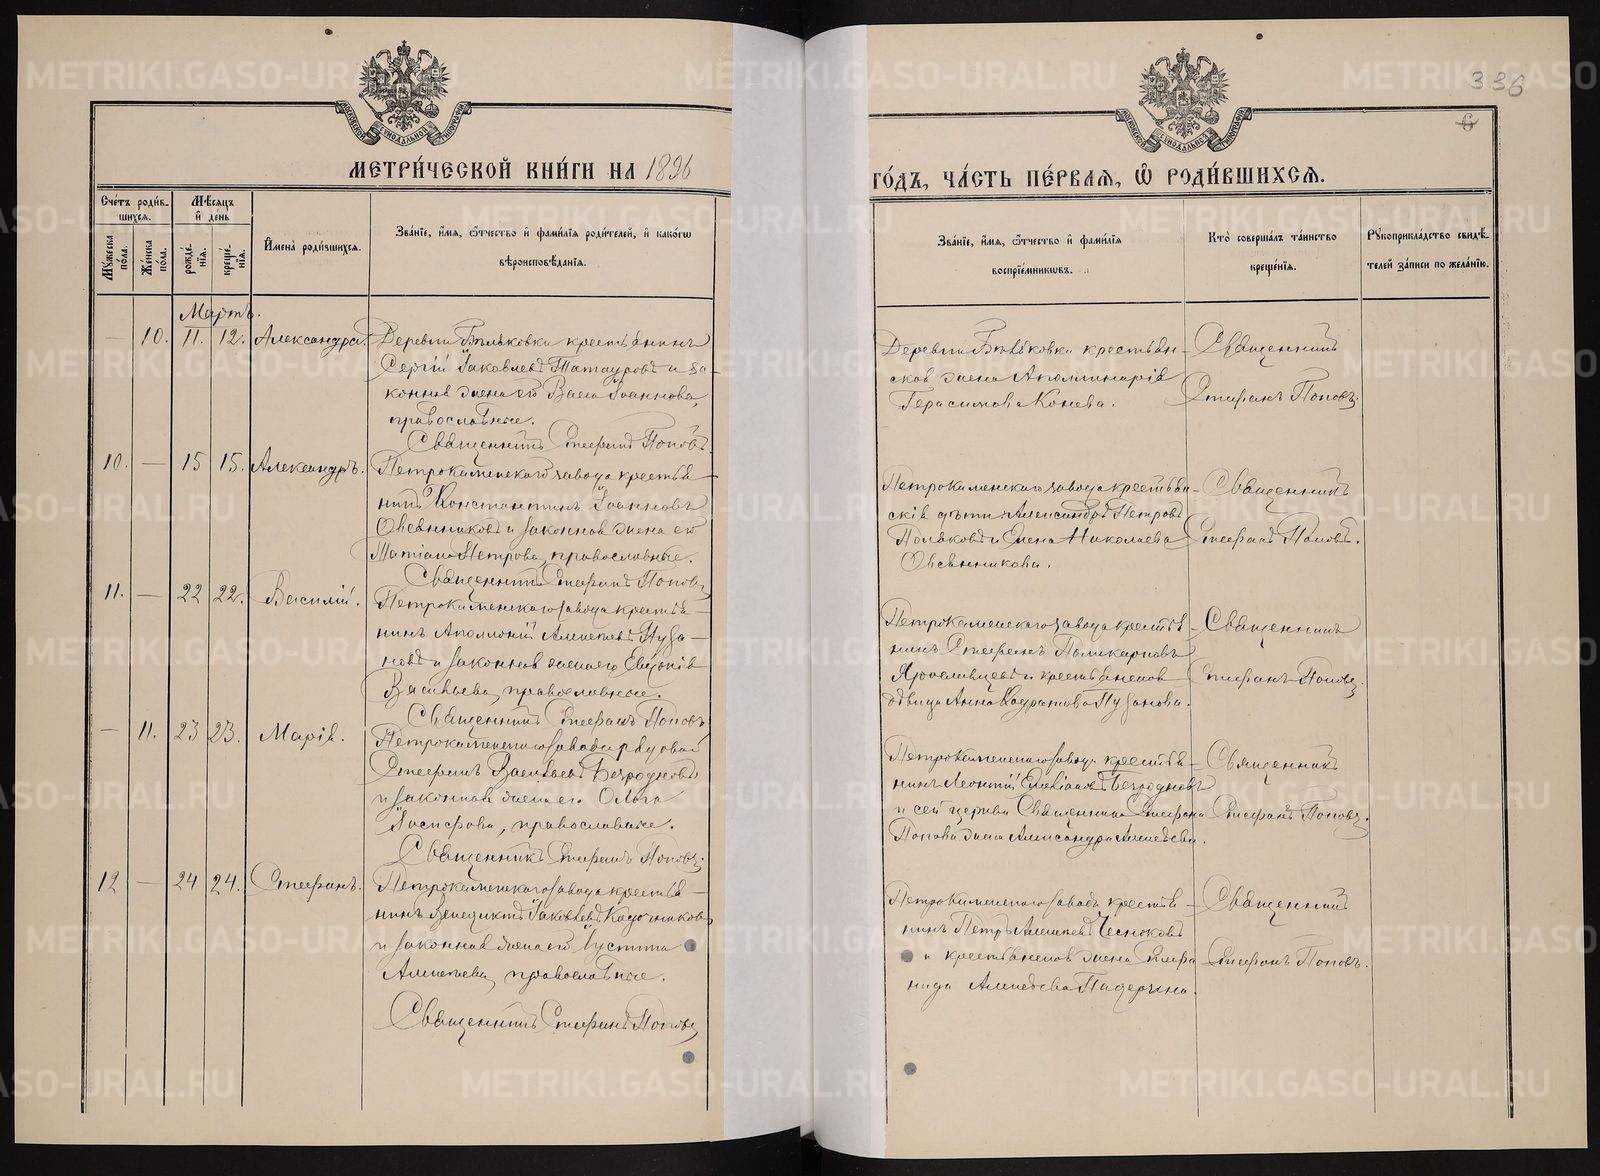 336
6
МОСКОВСКОЙ СѴНОДАЛЬНОЙ ТИПОГРАФІИ
МЕТРИ́ЧЕСКОЙ КНИ́ГИ НА 1896
ГО́ДЪ, ЧА́СТЬ ПЕ́РВАЯ, Ѽ РОДИ́ВШИХСЯ.
Сче́тъ роди́в-
шихся.
Мꙋ́жеска по́ла.
Же́нска по́ла.
Мѣ́сяцъ и де́нь
рожде́нія.
креще́нія.
Имена̀ роди́вшихся.
Зва́ніе, и́мя, ѻ́тчество и фами́лія роди́телей, и како́гѡ
вѣроисповѣ́данія.
Зва́ніе, и́мя, ѻ́тчество и фами́лія
воспріе́мникѡвъ.
Кто̀ соверша́лъ та́инство
креще́нія.
Рꙋкоприкла́дство свидѣ́-
телей за́писи по жела́нію.
Мартъ.
— 10. 11. 12. Александра.
Деревни Бѣльковки крестьянинъ
Сергій Іаковлевъ Татауровъ и за-
конная жена его Васса Іоаннова,
православные.
Священникъ Стефанъ Поповъ
Деревни Бѣльковки крестьян-
ская жена Аполлинарія
Герасимова Конева.
Священникъ
Стефанъ Поповъ.
10. — 15 15. Александръ.
Петрокаменскаго завода крестья-
нинъ Константинъ Іоанновъ
Овсянниковъ и законная жена его
Татіана Петрова, православные.
Священникъ Стефанъ Поповъ
Петрокаменскаго завода крестьян-
скія дѣти: Александръ Петровъ
Поляковъ и Елена Николаева
Овсянникова.
Священникъ
Стефанъ Поповъ.
11. — 22 22. Василій.
Петрокаменскаго завода крестья-
нинъ Аполлоній Алексѣевъ Пуза-
новъ и законная жена его Евдокія
Васильева, православные.
Священникъ Стефанъ Поповъ
Петрокаменскаго завода крестья-
нинъ Стефанъ Поликарповъ
Ярославцевъ и крестьянская
дѣвица Анна Кодратова Пузанова.
Священникъ
Стефанъ Поповъ.
— 11. 23 23. Марія.
Петрокаменскаго завода рядовой
Стефанъ Васильевъ Безродновъ
и законная жена его Ольга
Іосифова, православные.
Священникъ Стефанъ Поповъ.
Петрокаменскаго завода крестья-
нинъ Леонтій Безродновъ
и сей церкви Священника Стефана
Попова жена Александра Алексѣева.
Священникъ
Стефанъ Поповъ.
12 — 24 24. Стефанъ.
Петрокаменскаго завода крестья-
нинъ Венедиктъ Іаковлевъ Кадочниковъ
и законная жена его Іустина
Алексѣева, православные.
Священникъ Стефанъ Поповъ
Петрокаменскаго завода крестья-
нинъ Петръ Алексѣевъ Чесноковъ
и крестьянская жена Глике-
рія Алексѣева Падерина.
Священникъ
Стефанъ Поповъ.
METRIKI.GASO-URAL.RU